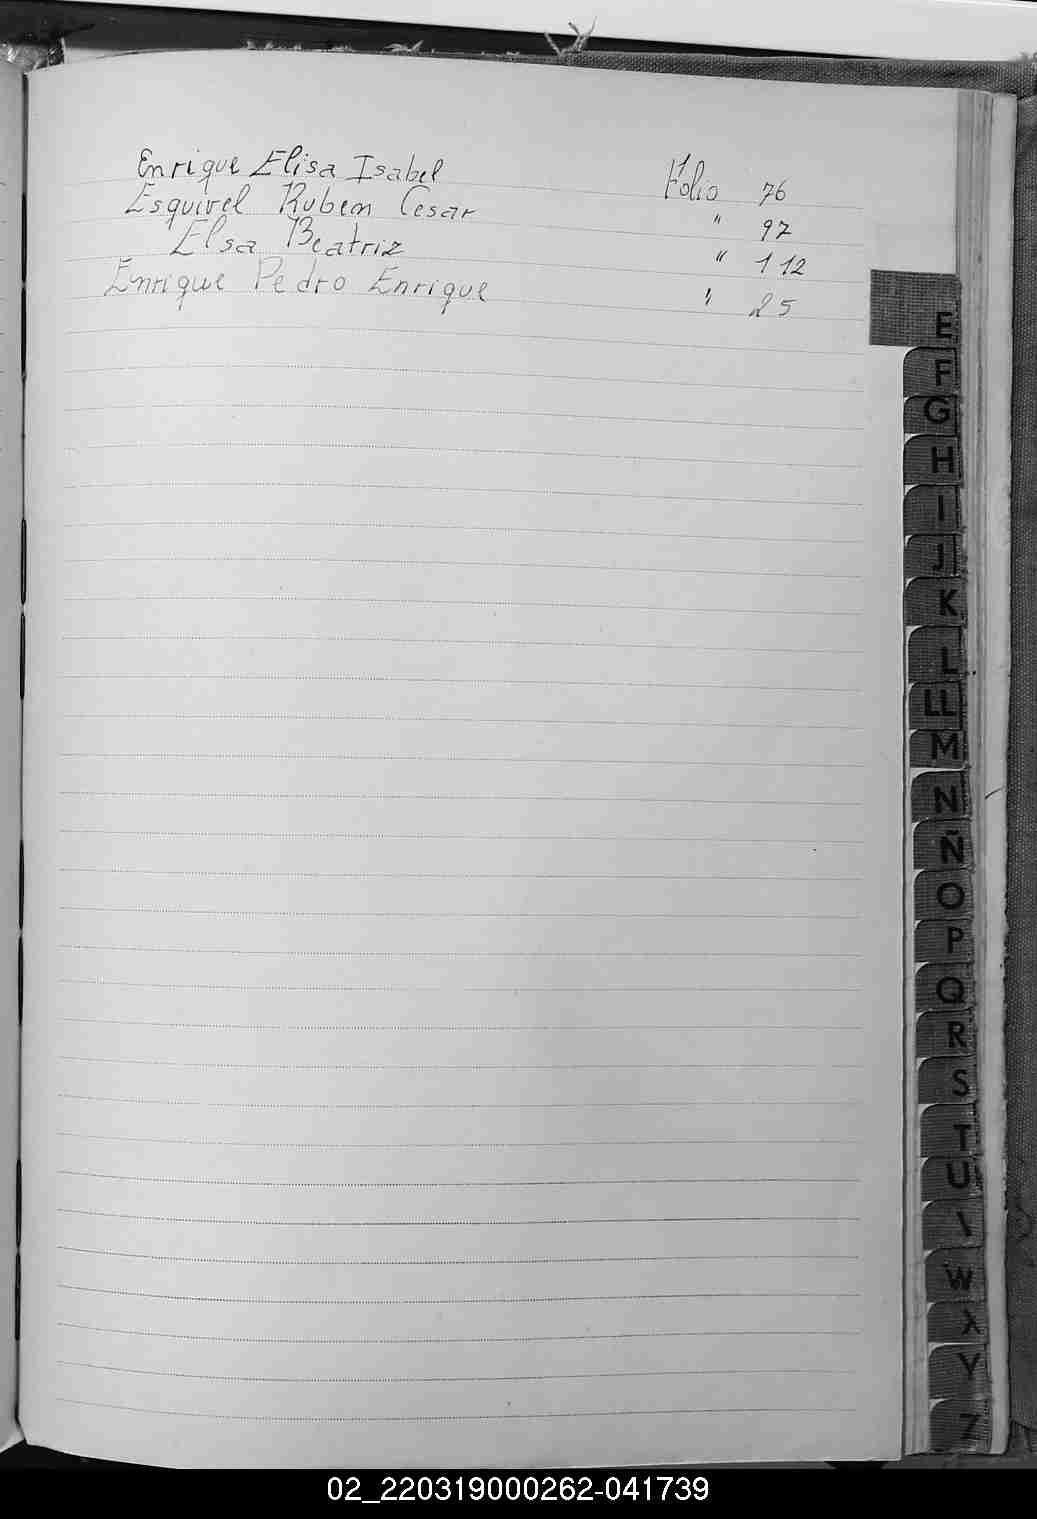 Enrique Elisa Isabel Folio 76
Esquivel Ruben Cesar " 97
Elsa Beatriz " 112
Enrique Pedro Enrique " 25
E
F
G
H
I
J
K
L
LL
M
N
Ñ
O
P
Q
R
S
T
U
W
X
Y
Z
02_220319000262-041739